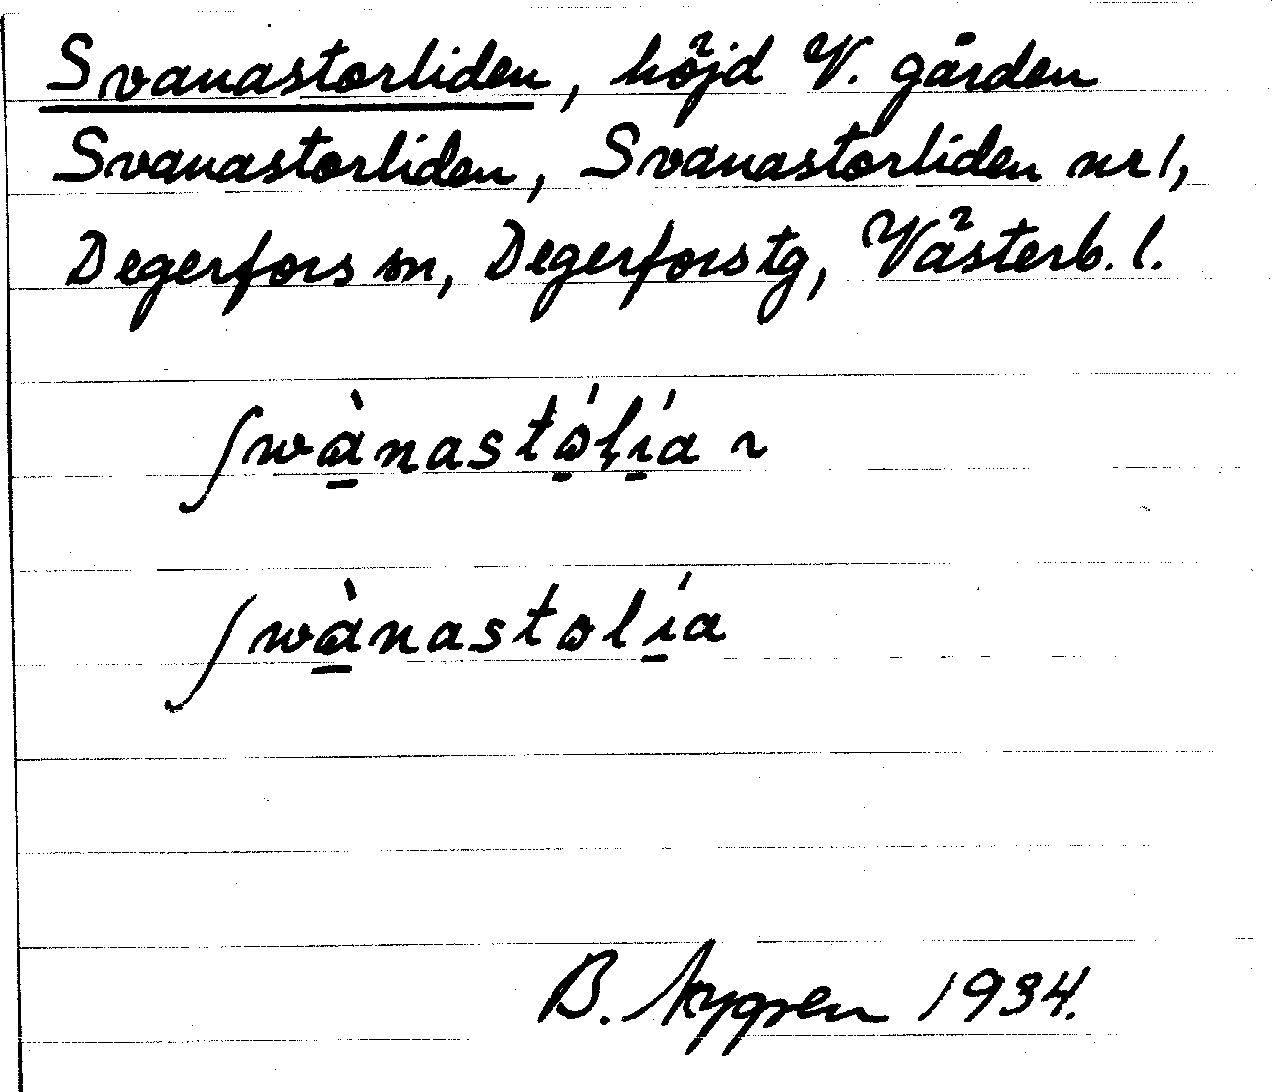 Svanastorliden, höjd V. gården
Svanastorliden, Svanastorliden nr 1,
Degerfors sn, Degerfors tg, Västerb. l.
ʃwànastólía ~
ʃwànastolía
B. Nygren 1934.